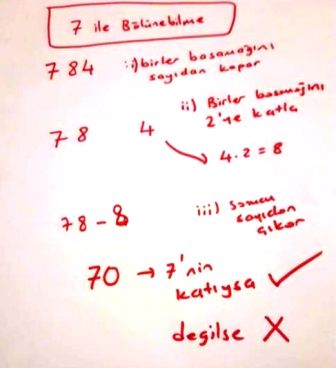 7 ile Bölünebilme
784 i) birler basamağını
sayıdan kopar
78 4 ii) Birler basamağını
2'ye katla
4.2=8
78-8 iii) Sonucu
sayıdan
çıkar
70 → 7'nin
katıysa ✓
değilse X